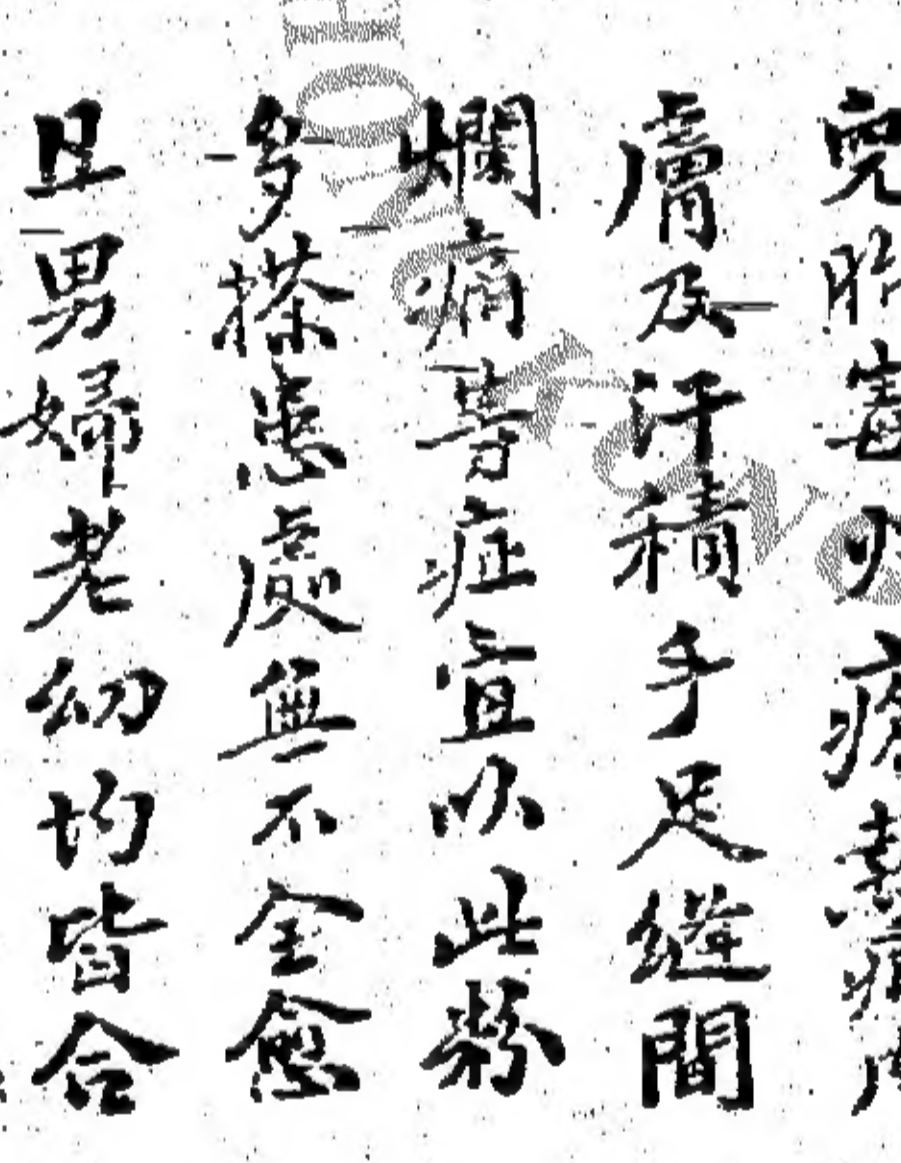 毒熱
膚及汗積手足縫間
爛痛等症宜以此粉
多搽患處無不全愈
且男婦老幼均皆合